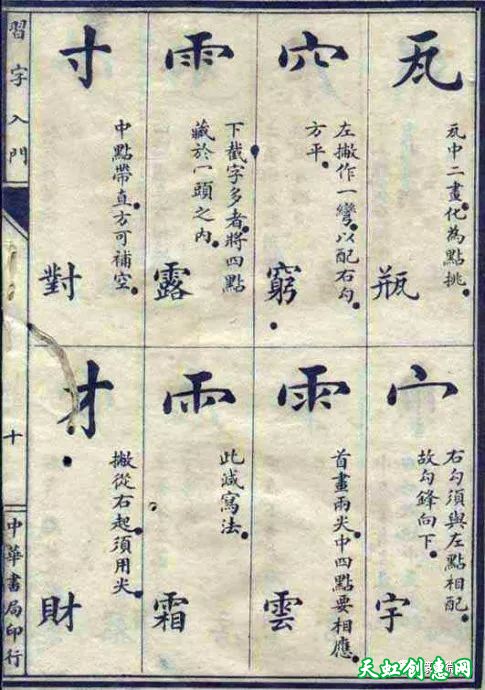 瓦
瓦中二畫化為點挑
瓶
穴
左撇作一彎以配右勾
方平
窮
雨
下截字多者將四點
藏於一頭之內
露
寸
中點帶直方可補空
對
宀
右勾須與左點相配
故勾鋒向下
宇
雨
首畫兩尖中四點要相應
雲
雨
此減寫法
霜
才
撇從右起須用尖
財
習字入門
十
中華書局印行
天虹创意网